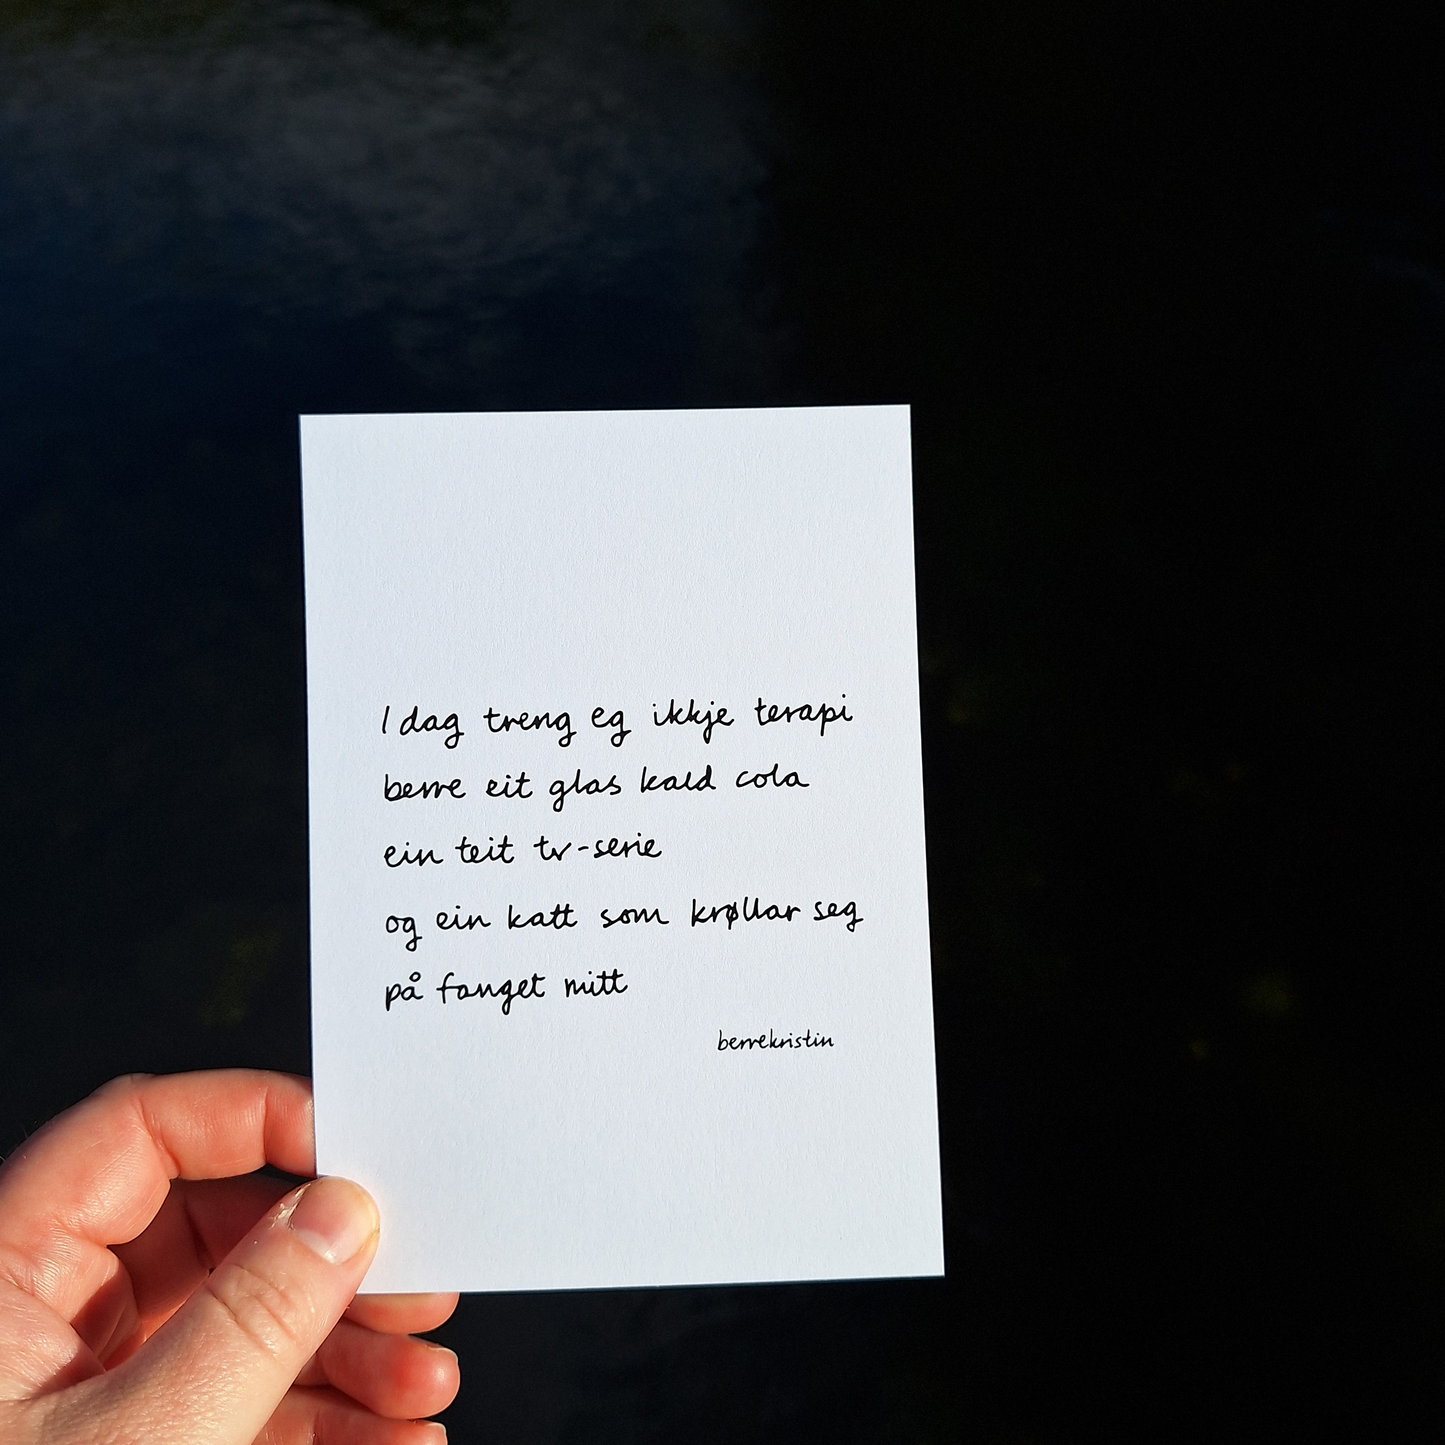 I dag treng eg ikkje terapi
berre eit glas kald cola
ein teit tv-serie
og ein katt som krøllar seg
på fanget mitt
berrekristin